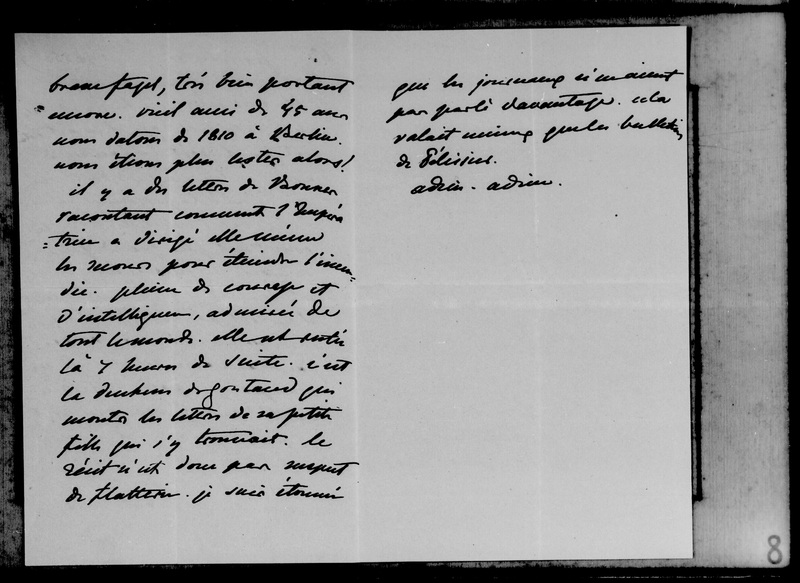 brave fagel, très bien portant
encore. vieil ami de 45 ans
nous datons de 1810 à Berlin.
nous étions plus lestes alors!
il y a des lettres de Bonnes
racontant comment l'Impéra
=trice a dirigé elle même
les secours pour éteindre l'incen=
die. pleine de courage et
d'intelligence, admirée de
tout le monde. elle est restée
là 7 heures de suite. c'est
la duchesse de gontaud qui
montre les lettres de sa petite
fille qui s'y trouvait. le
récit n'est donc pas suspect
de flatterie. je suis étonnée
que les journaux n'en aient
pas parlé davantage. cela
valait mieux que les bulletins
de Pélissier.
adieu. adieu.
8